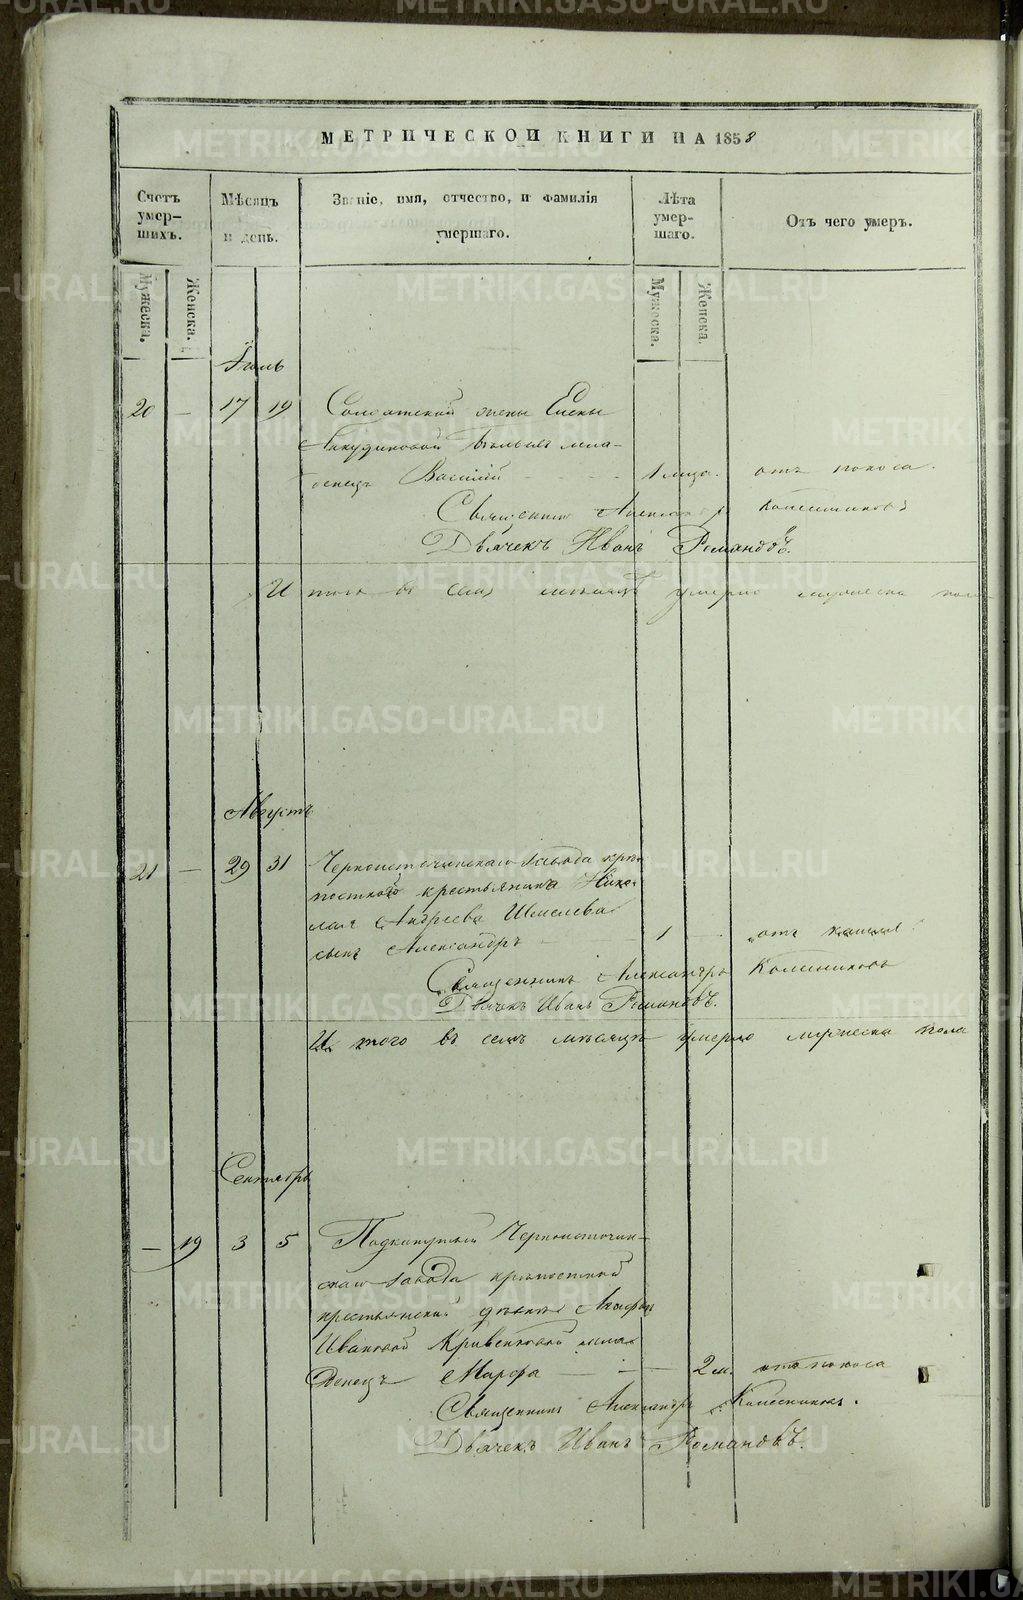 МЕТРИЧЕСКОЙ КНИГИ НА 1858
Счетъ умер-шихъ.
Мѣсяцъ и день.
Званіе, имя, отчество, и фамилія умершаго.
Лѣта умер-шаго.
Отъ чего умеръ.
Мужеска. Женска. Мужеска. Женска.
Іюль
20 — 17 19 Солдатской жены Елены
мла-
денецъ Василій 1 отъ поноса.
Священникъ Александръ Колесниковъ
Дьячекъ Иванъ Романовъ.
И того въ семъ мѣсяцѣ умерло мужеска пола
Августъ
21 — 29 31 Черноисточинскаго завода крѣ-
постнаго крестьянина Нико-
лая Андреева Шмелева
сынъ Александръ 1 — отъ кашля
Священникъ Александръ Колесниковъ
Дьячекъ Иванъ Романовъ.
И того въ семъ мѣсяцѣ умерло мужеска пола
Сентябрь
— 19 3 5 Подкинутый Черноисточин-
скаго завода крѣпостной
крестьянской дѣвки
Ивановой Кривенковой мла-
денецъ Марфа — 2 м. отъ поноса
Священникъ Александръ Колесниковъ.
Дьячекъ Иванъ Романовъ.
METRIKI.GASO-URAL.RU